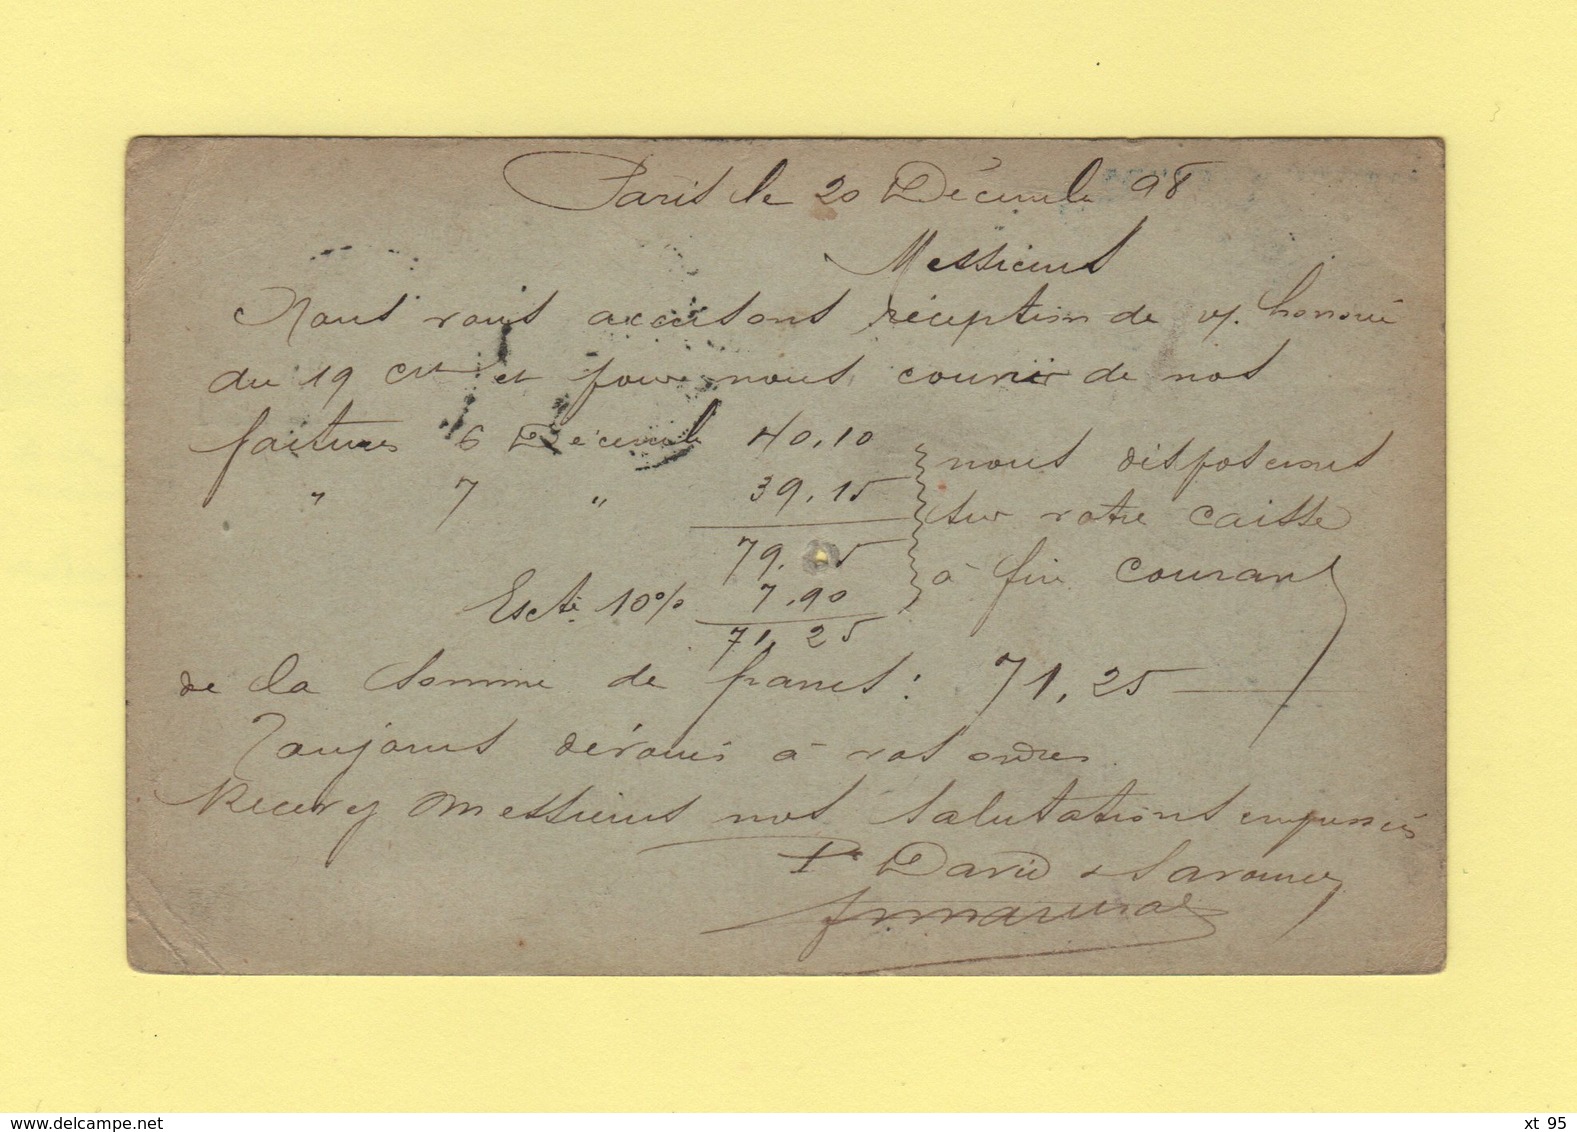 Paris le 20 Décembre 98
Messieurs
Nous vous accusons réception de v/. honorée
du 19 crt et pour nous couvrir de nos
factures 6 Décembre 40,10
" 7 " 39,15
79. 5
Escte 10% 7,90
71,25
nous disposerons
sur votre caisse
à fin courant
de la somme de francs : 71,25
Toujours dévoués à vos ordres
Recevez Messieurs nos salutations empressées
Pr David &
www.delcampe.net
xt 95